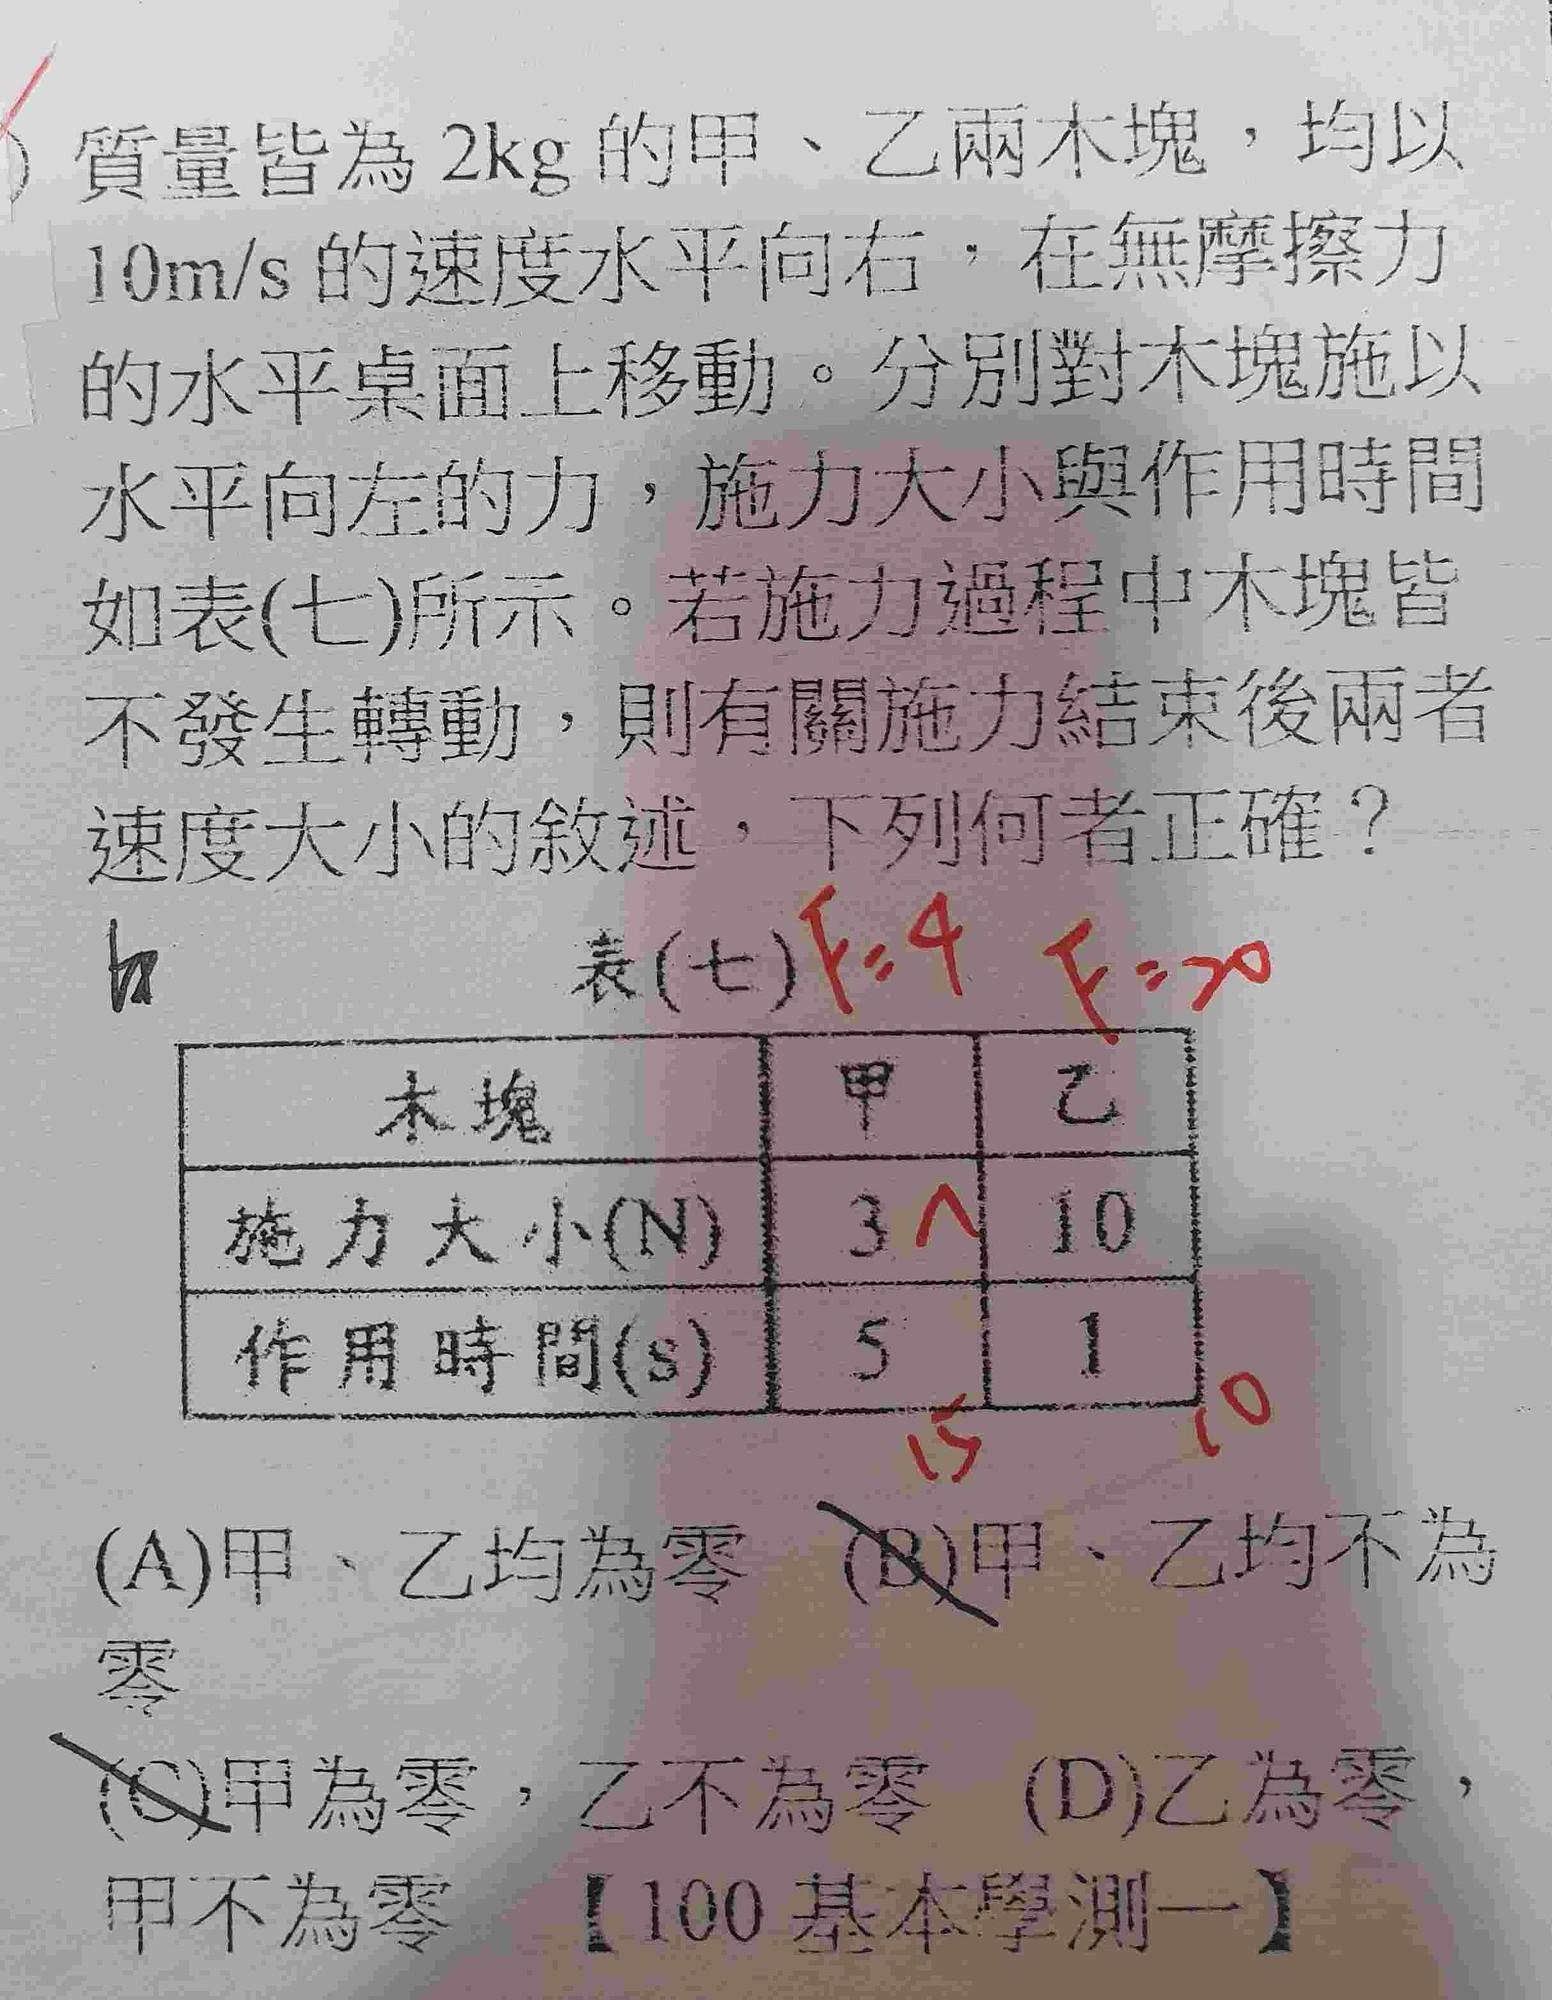 質量皆為 2kg 的甲、乙兩木塊,均以
10m/s 的速度水平向右,在無摩擦力
的水平桌面上移動。分別對木塊施以
水平向左的力,施力大小與作用時間
如表(七)所示。若施力過程中木塊皆
不發生轉動,則有關施力結束後兩者
速度大小的敘述,下列何者正確?
表(七) F=4 F=20
木塊 甲 乙
施力大小(N) 3 < 10
作用時間(s) 5 1
15 10
(A)甲、乙均為零 (B)甲、乙均不為
零
(C)甲為零,乙不為零 (D)乙為零,
甲不為零 【100 基本學測一】